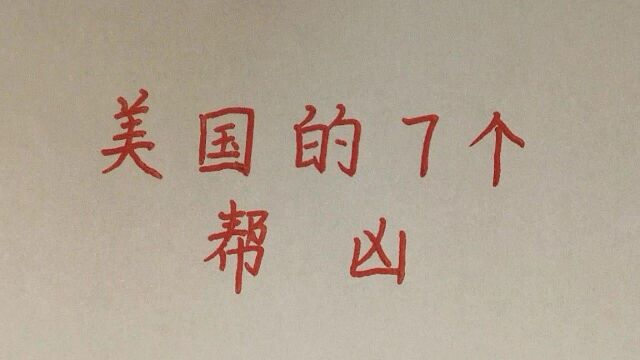 美国的7个
帮凶